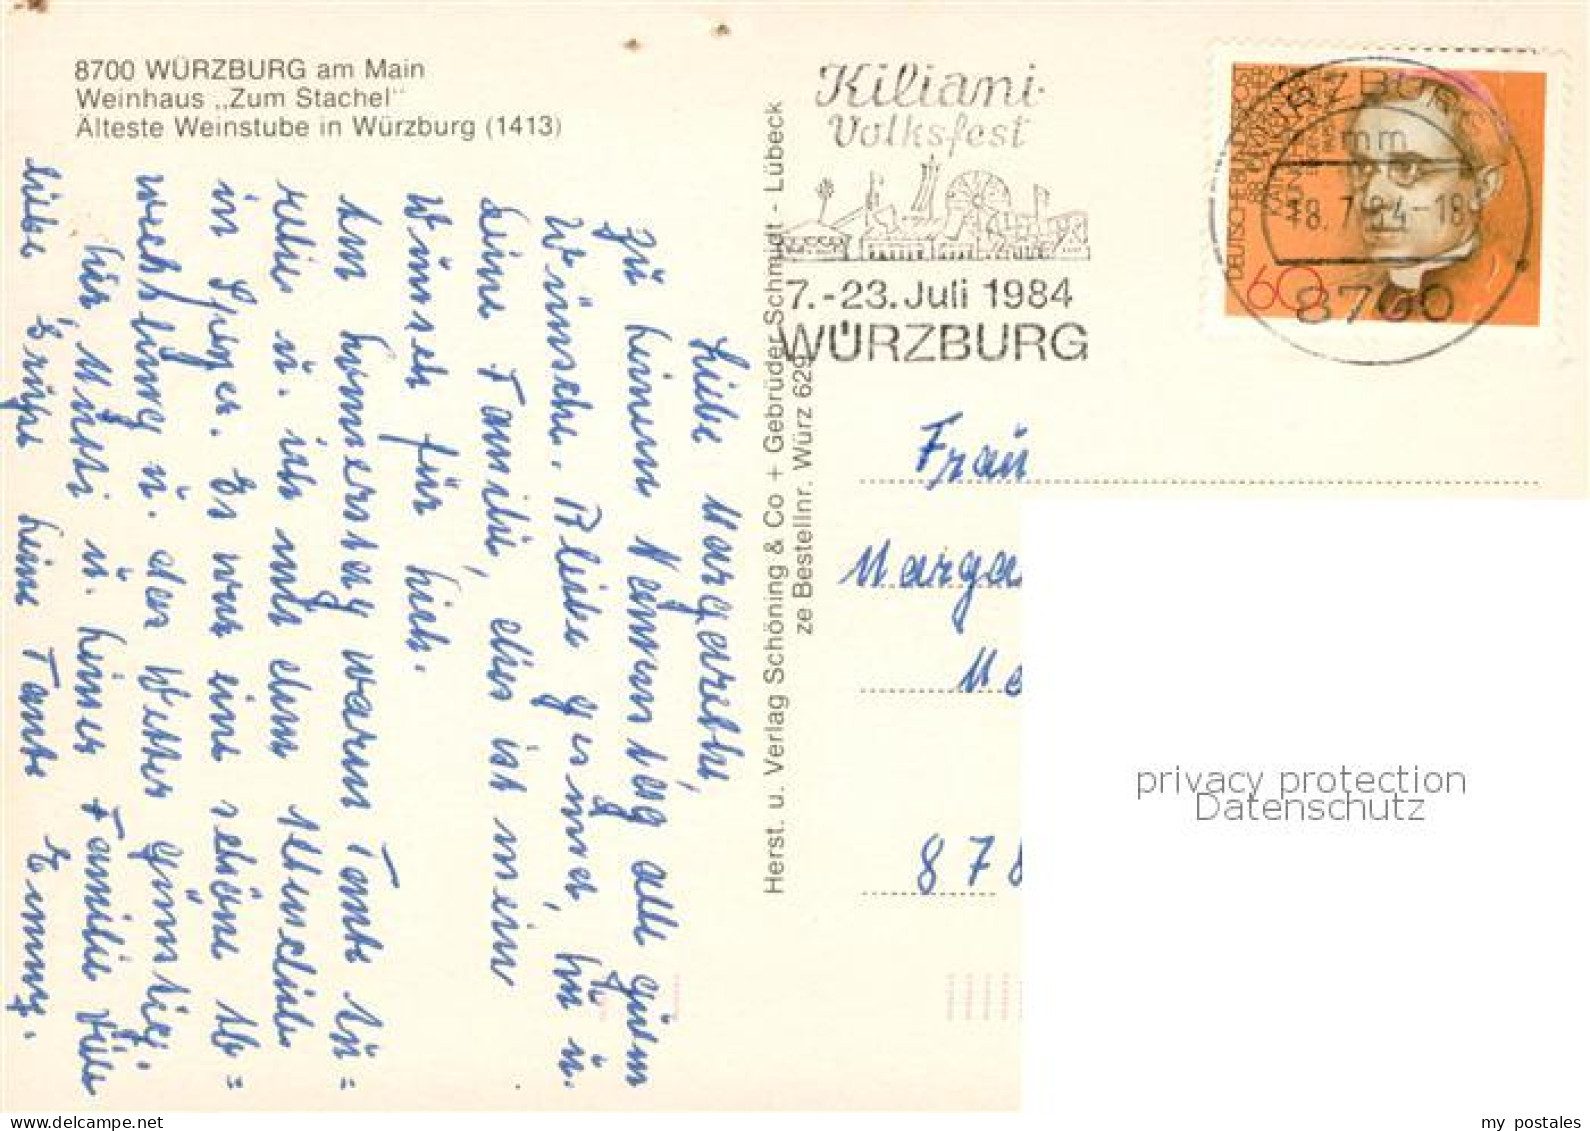 8700 WÜRZBURG am Main
Weinhaus „Zum Stachel"
Älteste Weinstube in Würzburg (1413)
Kiliani-
Volksfest
7.-23. Juli 1984
WÜRZBURG
WÜRZBURG
mm
18.7.84-18
8700
DEUTSCHE BUNDESPOST
60
Herst. u. Verlag Schöning & Co + Gebrüder Schmidt - Lübeck
ze Bestellnr. Würz 629
Liebe Margarethe,
zu Deinem Namenstag alle guten
Wünsche. Bleibe gesund, Du u.
Deine Familie, dies ist mein
Wunsch für Dich.
Am Donnerstag waren Tante
u. ich mit dem
in . Es war eine schöne Ab=
wechslung u. das Wetter günstig.
Dir, Mutti u. Deiner Familie viele
liebe Grüße Deine Tante Emmy.
Frau
Marga
Ma
878
privacy protection
Datenschutz
my postales